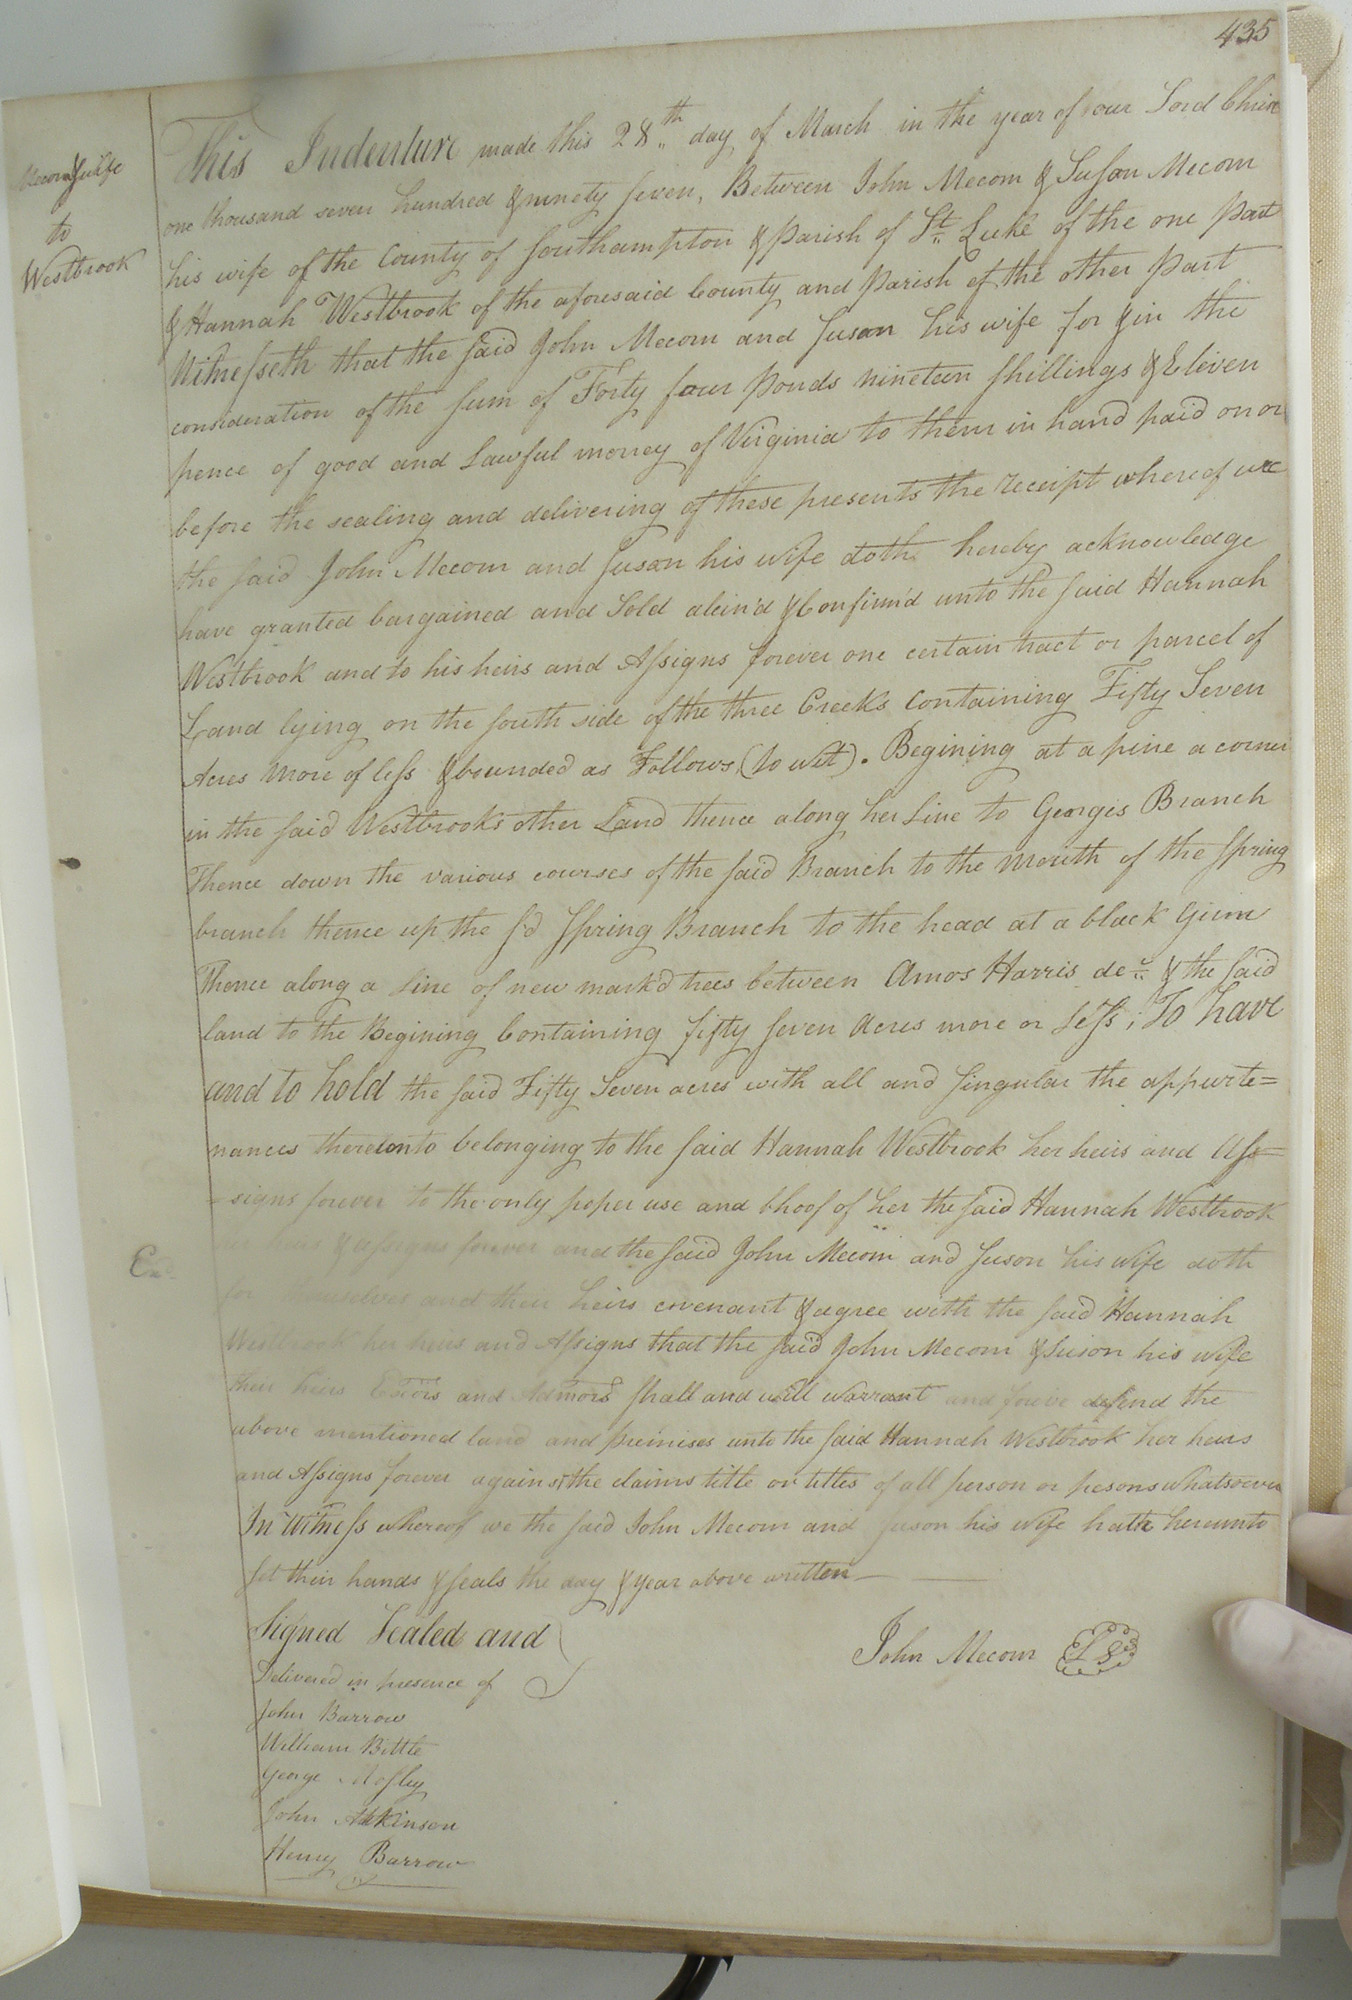 435
Mecom & wife
to
Westbrook
This Indenture made this 28th day of March in the year of our Lord Christ
one thousand seven hundred & ninety seven, Between John Mecom & Susan Mecom
his wife of the County of Southampton & parish of St. Luke of the one part
& Hannah Westbrook of the aforesaid County and parish of the other part
Witnesseth that the said John Mecom and Susan his wife for & in the
consideration of the sum of Forty four ponds nineteen shillings & Eleven
pence of good and Lawful money of Virginia to them in hand paid on or
before the sealing and delivering of these presents the receipt whereof we
the said John Mecom and Susan his wife doth hereby acknowledge
have granted bargained and Sold alein'd & Confirm'd unto the said Hannah
Westbrook and to his heirs and Assigns forever one certain tract or parcel of
Land lying on the south side of the three Creeks Containing Fifty Seven
Acres More of less & bounded as Follows (to wit). Begining at a pine a corner
in the said Westbrooks other Land thence along her Line to Georges Branch
Thence down the various courses of the said Branch to the Mouth of the Spring
branch thence up the s'd Spring Branch to the head at a black Gum
Thence along a Line of new mark'd trees between Amos Harris dec. & the said
land to the Begining Containing fifty seven Acres more or Less; To have
and to hold the said Fifty Seven acres with all and singular the appurte=
nances thereonto belonging to the said Hannah Westbrook her heirs and Ass=
=signs forever to the only poper use and bhoof of her the said Hannah Westbrook
her heirs & assigns forever and the said John Mecom and Suson his wife doth
for themselves and their heirs covenant & agree with the said Hannah
Westbrook her heirs and Assigns that the said John Mecom & Suson his wife
their heirs Exors and Admors shall and will warrant and forever defend the
above mentioned land and primises unto the said Hannah Westbrook her heirs
and Assigns forever against the claims title or titles of all person or pesons whatsoever
In Witness whereof we the said John Mecom and Suson his wife hath hereunto
set their hands & seals the day & year above written
Signed Sealed and
John Mecom LS
Delivered in presence of
John Barrow
William Bittle
George Mosley
John Atkinson
Henry Barrow